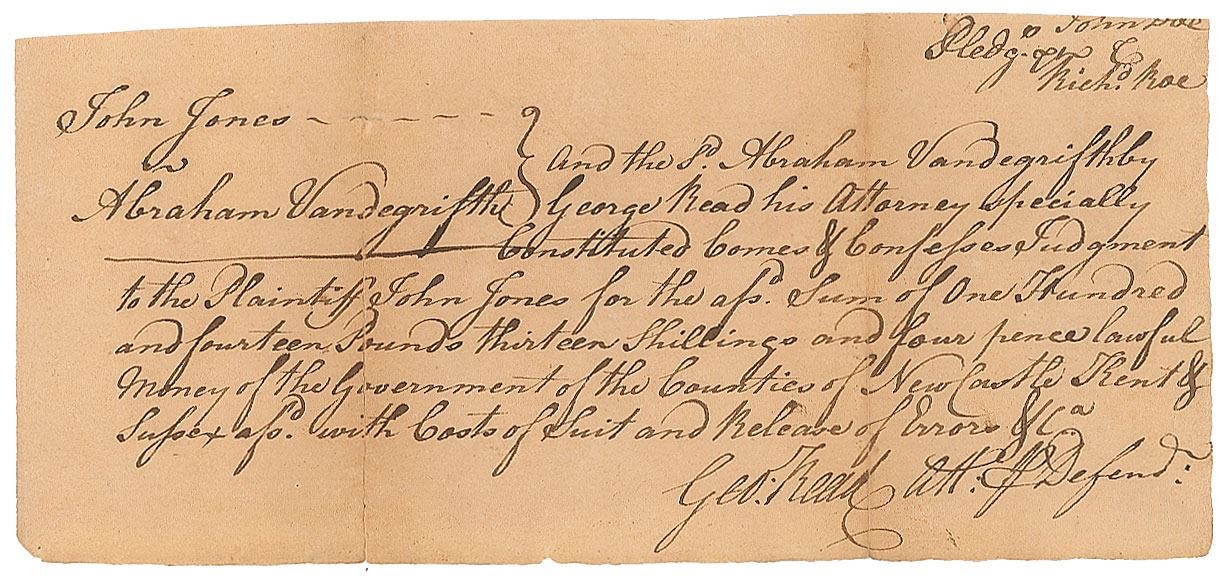 John Doe
Pledgs &c
Richd. Roe
John Jones - - - - - -
v
Abraham Vandegrifth
And the sd. Abraham Vandegrifth by
George Read his Attorney specially
Constituted Comes & Confesses Judgment
to the Plaintiff John Jones for the afsd. Sum of One Hundred
and fourteen Pounds thirteen Shillings and four pence lawful
Money of the Government of the Counties of New Castle Kent &
Sussex afsd. with Costs of Suit and Release of Errors &ca
Geo: Read Att: pr Defendt: